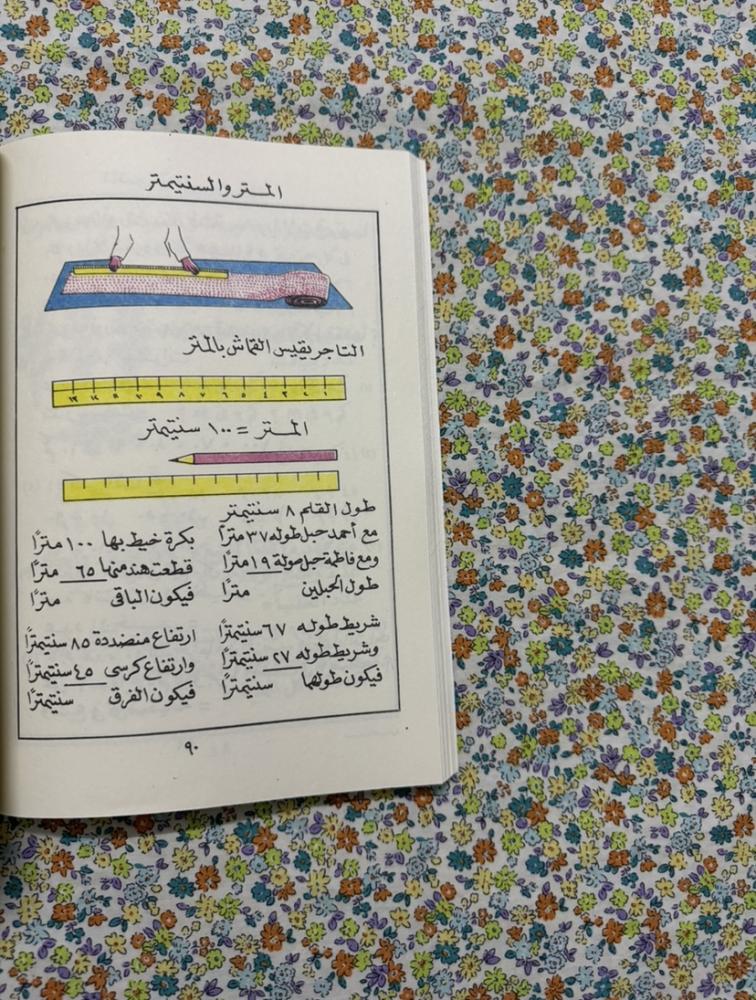 المتر والسنتيمتر
التاجر يقيس القماش بالمتر
١ ٢ ٣ ٤ ٥ ٦ ٧ ٨ ٩ ١٠ ١١ ١٢ ١٣
المتر = ١٠٠ سنتيمتر
طول القلم ٨ سنتيمتر
مع أحمد حبل طوله ٣٧ مترًا
ومع فاطمة حبل صولة ١٩ مترًا
طول الحبلين مترًا
بكرة خيط بها ١٠٠ مترًا
قطعت هند منها ٦٥ مترًا
فيكون الباقى مترًا
شريط طوله ٦٧ سنتيمترًا
وشريط طوله ٢٧ سنتيمترًا
فيكون طولهما سنتيمترًا
ارتفاع منضددة ٨٥ سنتيمترًا
وارتفاع كرسى ٤٥ سنتيمترًا
فيكون الفرق سنتيمترًا
٩٠